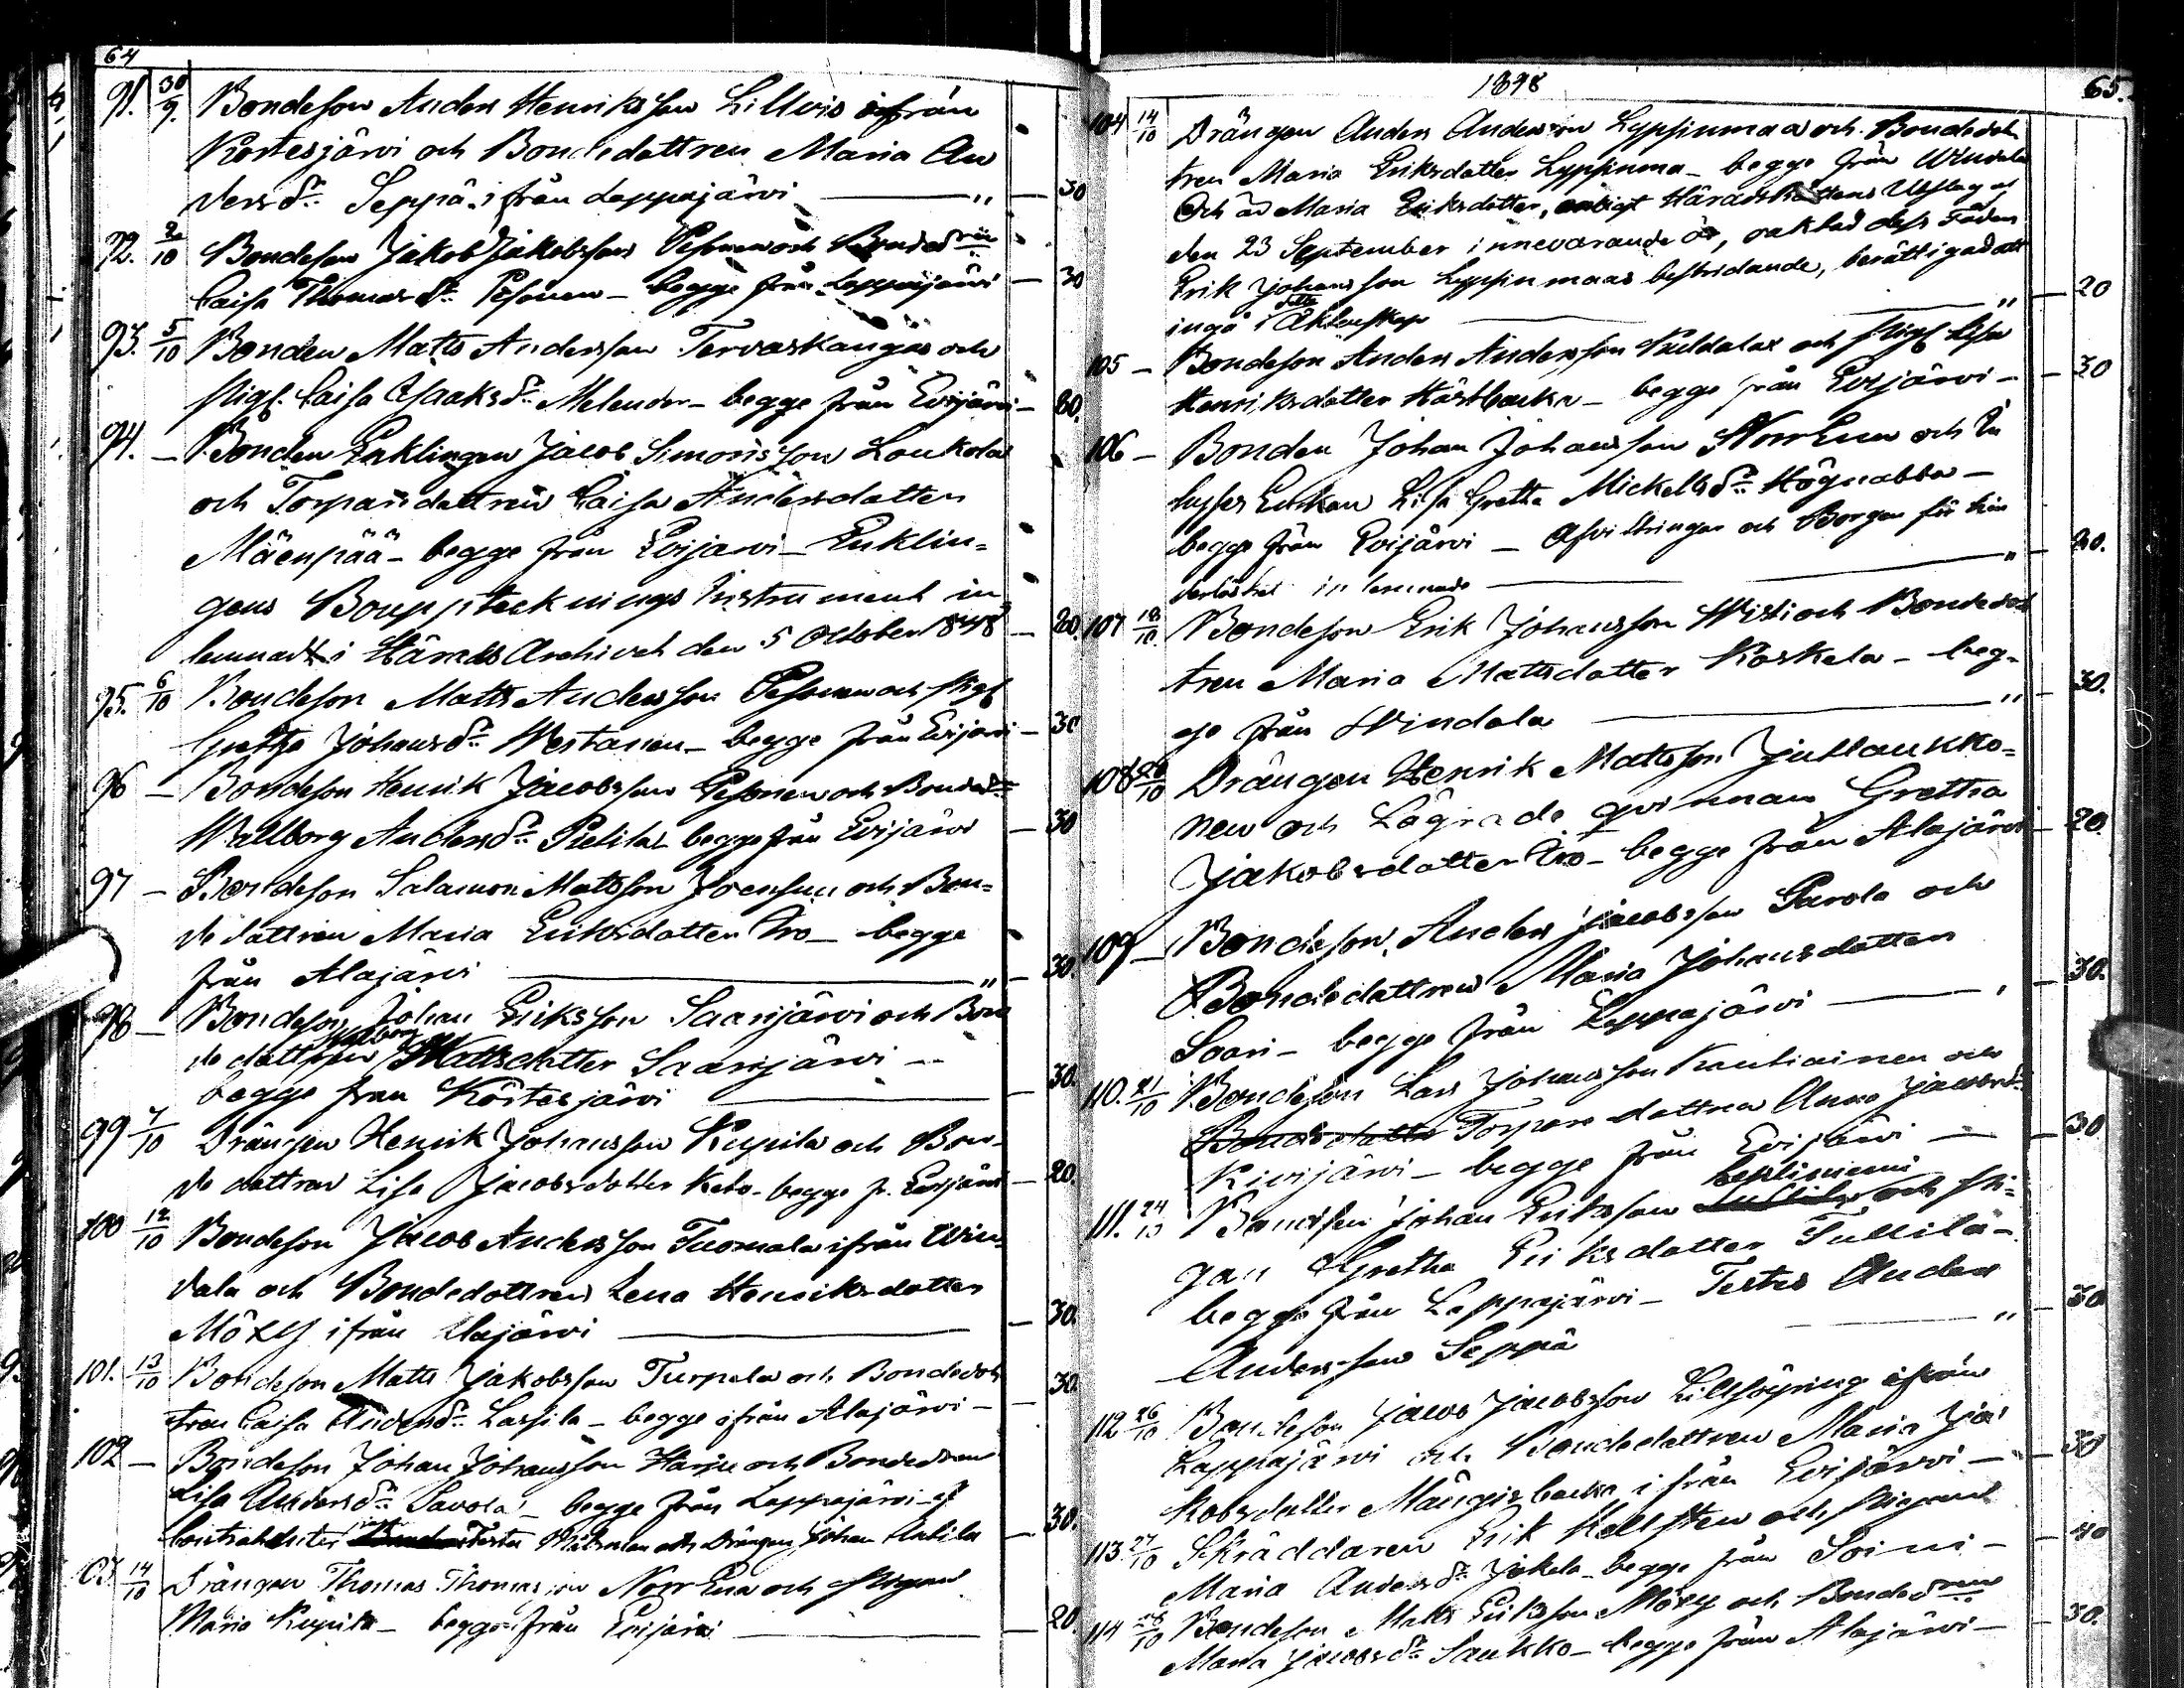 64
91. 30/9. Bondeson Anders Henriksson Lillvis ifrån
Kortesjärvi och Bondedottren Maria An
ders dr Seppä ifrån Lappajärvi — " — 30
92. 2/10 Bondeson Jakob Jakobsson Pesonen och Bonded ren
Caisa Thomas dr Pesonen — begge från Lappajärvi — 30
93. 5/10 Bonden Matts Andersson Tervaskangas och
Pig. Caisa Isaaks dr Melender — begge från Evijärvi — 20.
94. — Bonden Enklingen Jacob Simonsson Loukola
och Torparedottren Caisa Andersdotter
Mäenpää — begge från Evijärvi — Enklin=
gens Boupptecknings Instrument in
lemnadt i Härads Archivet den 5 October 1848 — 20.
95. 6/10 Bondeson Matts Andersson Pesonen och Pig.
Gretha Johans dr Westanen — begge från Evijärvi — 30
96 — Bondeson Henrik Jacobsson Pesonen och Bonded
Wallborg Anders dr Pietilä — begge från Evijärvi — 30
97 — Bondeson Salamon Mattsson Joensuu och Bon=
dedottren Maria Eriksdotter Aro — begge
från Alajärvi — " — 30
98 — Bondeson Johan Eriksson Saarijärvi och Bon
dedottren Walborg Mattsdotter Saarijärvi —
begge från Kortesjärvi — 30.
99 7/10 Drängen Henrik Johansson Rupila och Bon-
dedottren Lisa Jacobsdotter Keto — begge fr. Evijärvi — 20.
100 12/10 Bondeson Jacob Andersson Tuomala ifrån Win-
dala och Bondedottren Lena Henriksdotter
Möxy ifrån Alajärvi — 30.
101. 13/10 Bondeson Matts Jakobsson Turpela och Bondedot
tren Caisa Anders dr Lassila — begge ifrån Alajärvi — 30.
102 — Bondeson Johan Johansson Harju och Bondedren
Lisa Anders dr Savola — begge från Lappajärvi —
Contrahenter Testes och Drängen Johan — 30.
103 14/10 Drängen Thomas Thomasson Norr Ena och Pigan
Maria Rupila — begge från Evijärvi — 20
1848
65.
104 14/10 Drängen Anders Andersson Lyppinmaa och Bondedot
tren Maria Eriksdotter Lyppinma — begge från Windala
Och är Maria Eriksdotter, enligt HäradsRättens Utslag af
den 23 September innevarande år, oaktad dess Faders
Erik Johansson Lyppinmaas bestridande, berättigad att
ingå i detta Äktenskap — " — 20
105 — Bondeson Anders Andersson och Pig. Lisa
Henriksdotter Hästbacka — begge från Evijärvi — 30
106 — Bonden Johan Johansson Norr Ena och
Enkan Lisa Gretha Mickels dr Högnabba —
begge från Evijärvi — Afvittringen och Borgen för hin
derlöshet inlemnade — " — 20.
107 18/10. Bondeson Erik Johansson Wisti och Bondedot
tren Maria Mattsdotter Koskela — beg-
ge från Windala — " — 30.
108 20/10 Drängen Henrik Mattsson Juttaukko-
nen och Lägrade qvinnan Gretha
Jakobsdotter Aro — begge från Alajärvi — 20.
109 — Bondeson Anders Jacobsson Savola och
Bondedottren Maria Johansdotter
Saari — begge från Lappajärvi — 30.
110. 21/10 Bondeson Lars Johansson Kauhiainen och
Bondedotter Torparedottren Anna Jacobsdr
Kivijärvi — begge från Evijärvi — 30
111. 24/10 Bondeson Johan Eriksson och Pi=
gan Gretha Eriksdotter Tullilä —
begge från Lappajärvi — Testes Anders
Andersson Seppä — " — 30
112 26/10 Bondeson Jacob Jacobsson Lillsöyring ifrån
Lappajärvi och Bondedottren Maria Ja
kobsdotter Mängisbacka ifrån Evijärvi — 30
113 27/10 Skräddaren Erik Hellsten och Pigan
Maria Anders dr Jokela — begge från Soini — 40
114 28/10 Bondeson Matts Eriksson Möxy och Bondedren
Maria Jacobs dr Saukko — begge från Alajärvi — 30.